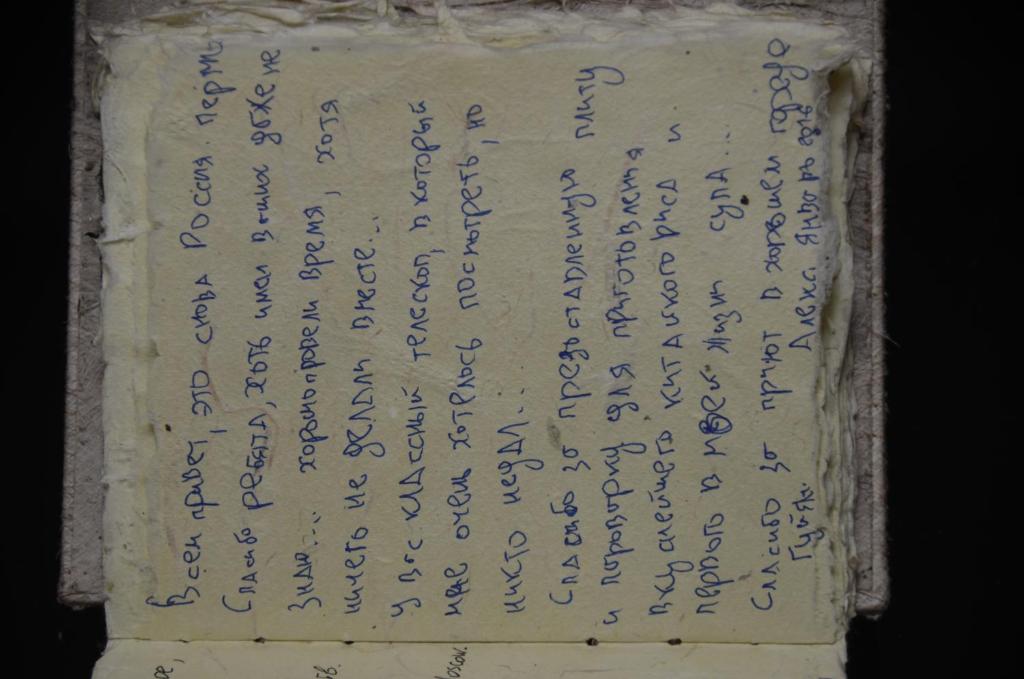 Всем привет, это снова Россия. Пермь
Спасибо ребята, хоть имён ваших даже не
знаю... хорошо провели время, хотя
ничего не делали вместе...
У вас классный телескоп, в который
мне очень хотелось посмотреть, но
никто не дал...
Спасибо за предоставленную плиту
и поварёшку для приготовления
вкуснейшего китайского риса и
первого в моей жизни супа...
Спасибо за приют в хорошем городе
Гуйян.
Алека Январь 2016
oscow.